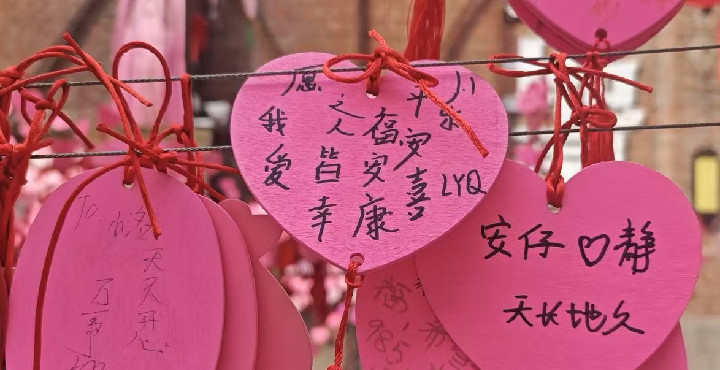 愿我爱
之人皆幸
福安康
平安喜
乐
LYQ
安仔♡静
天长地久
To.
天天开心
万事
985